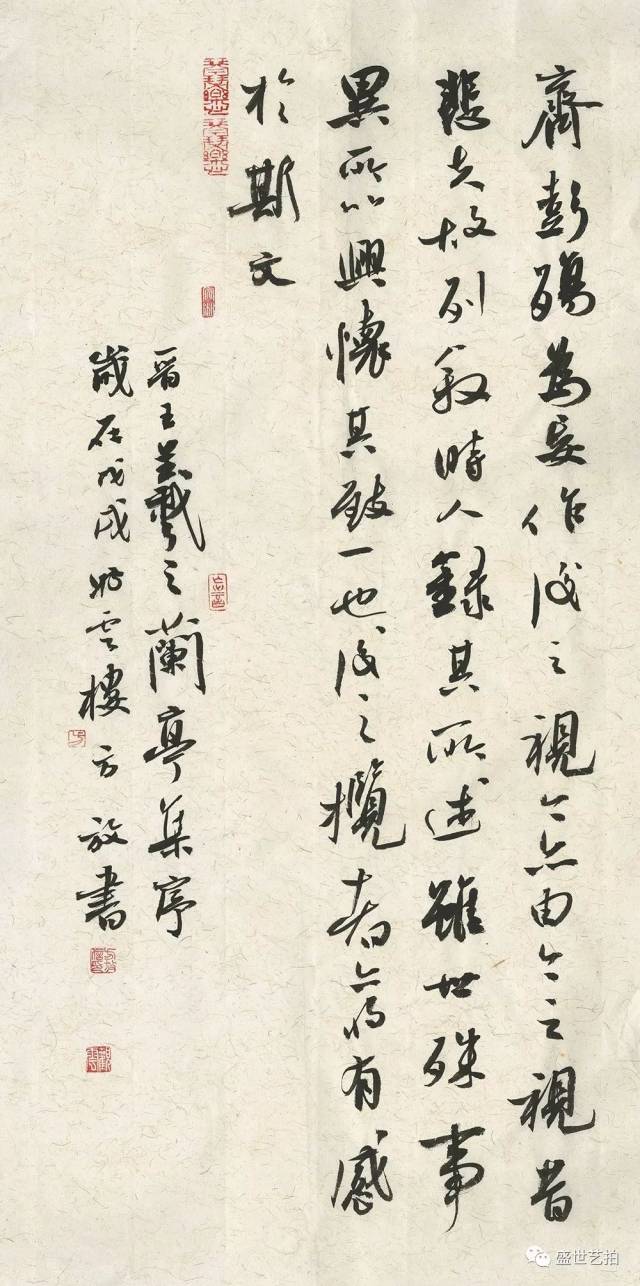 齊彭殤為妄作後之視今亦由今之視昔
悲夫故列叙時人録其所述雖世殊事
異所以興懷其致一也後之攬者亦将有感
於斯文
晋王羲之蘭亭集序
歲在戊戌云樓方放書
盛世艺拍